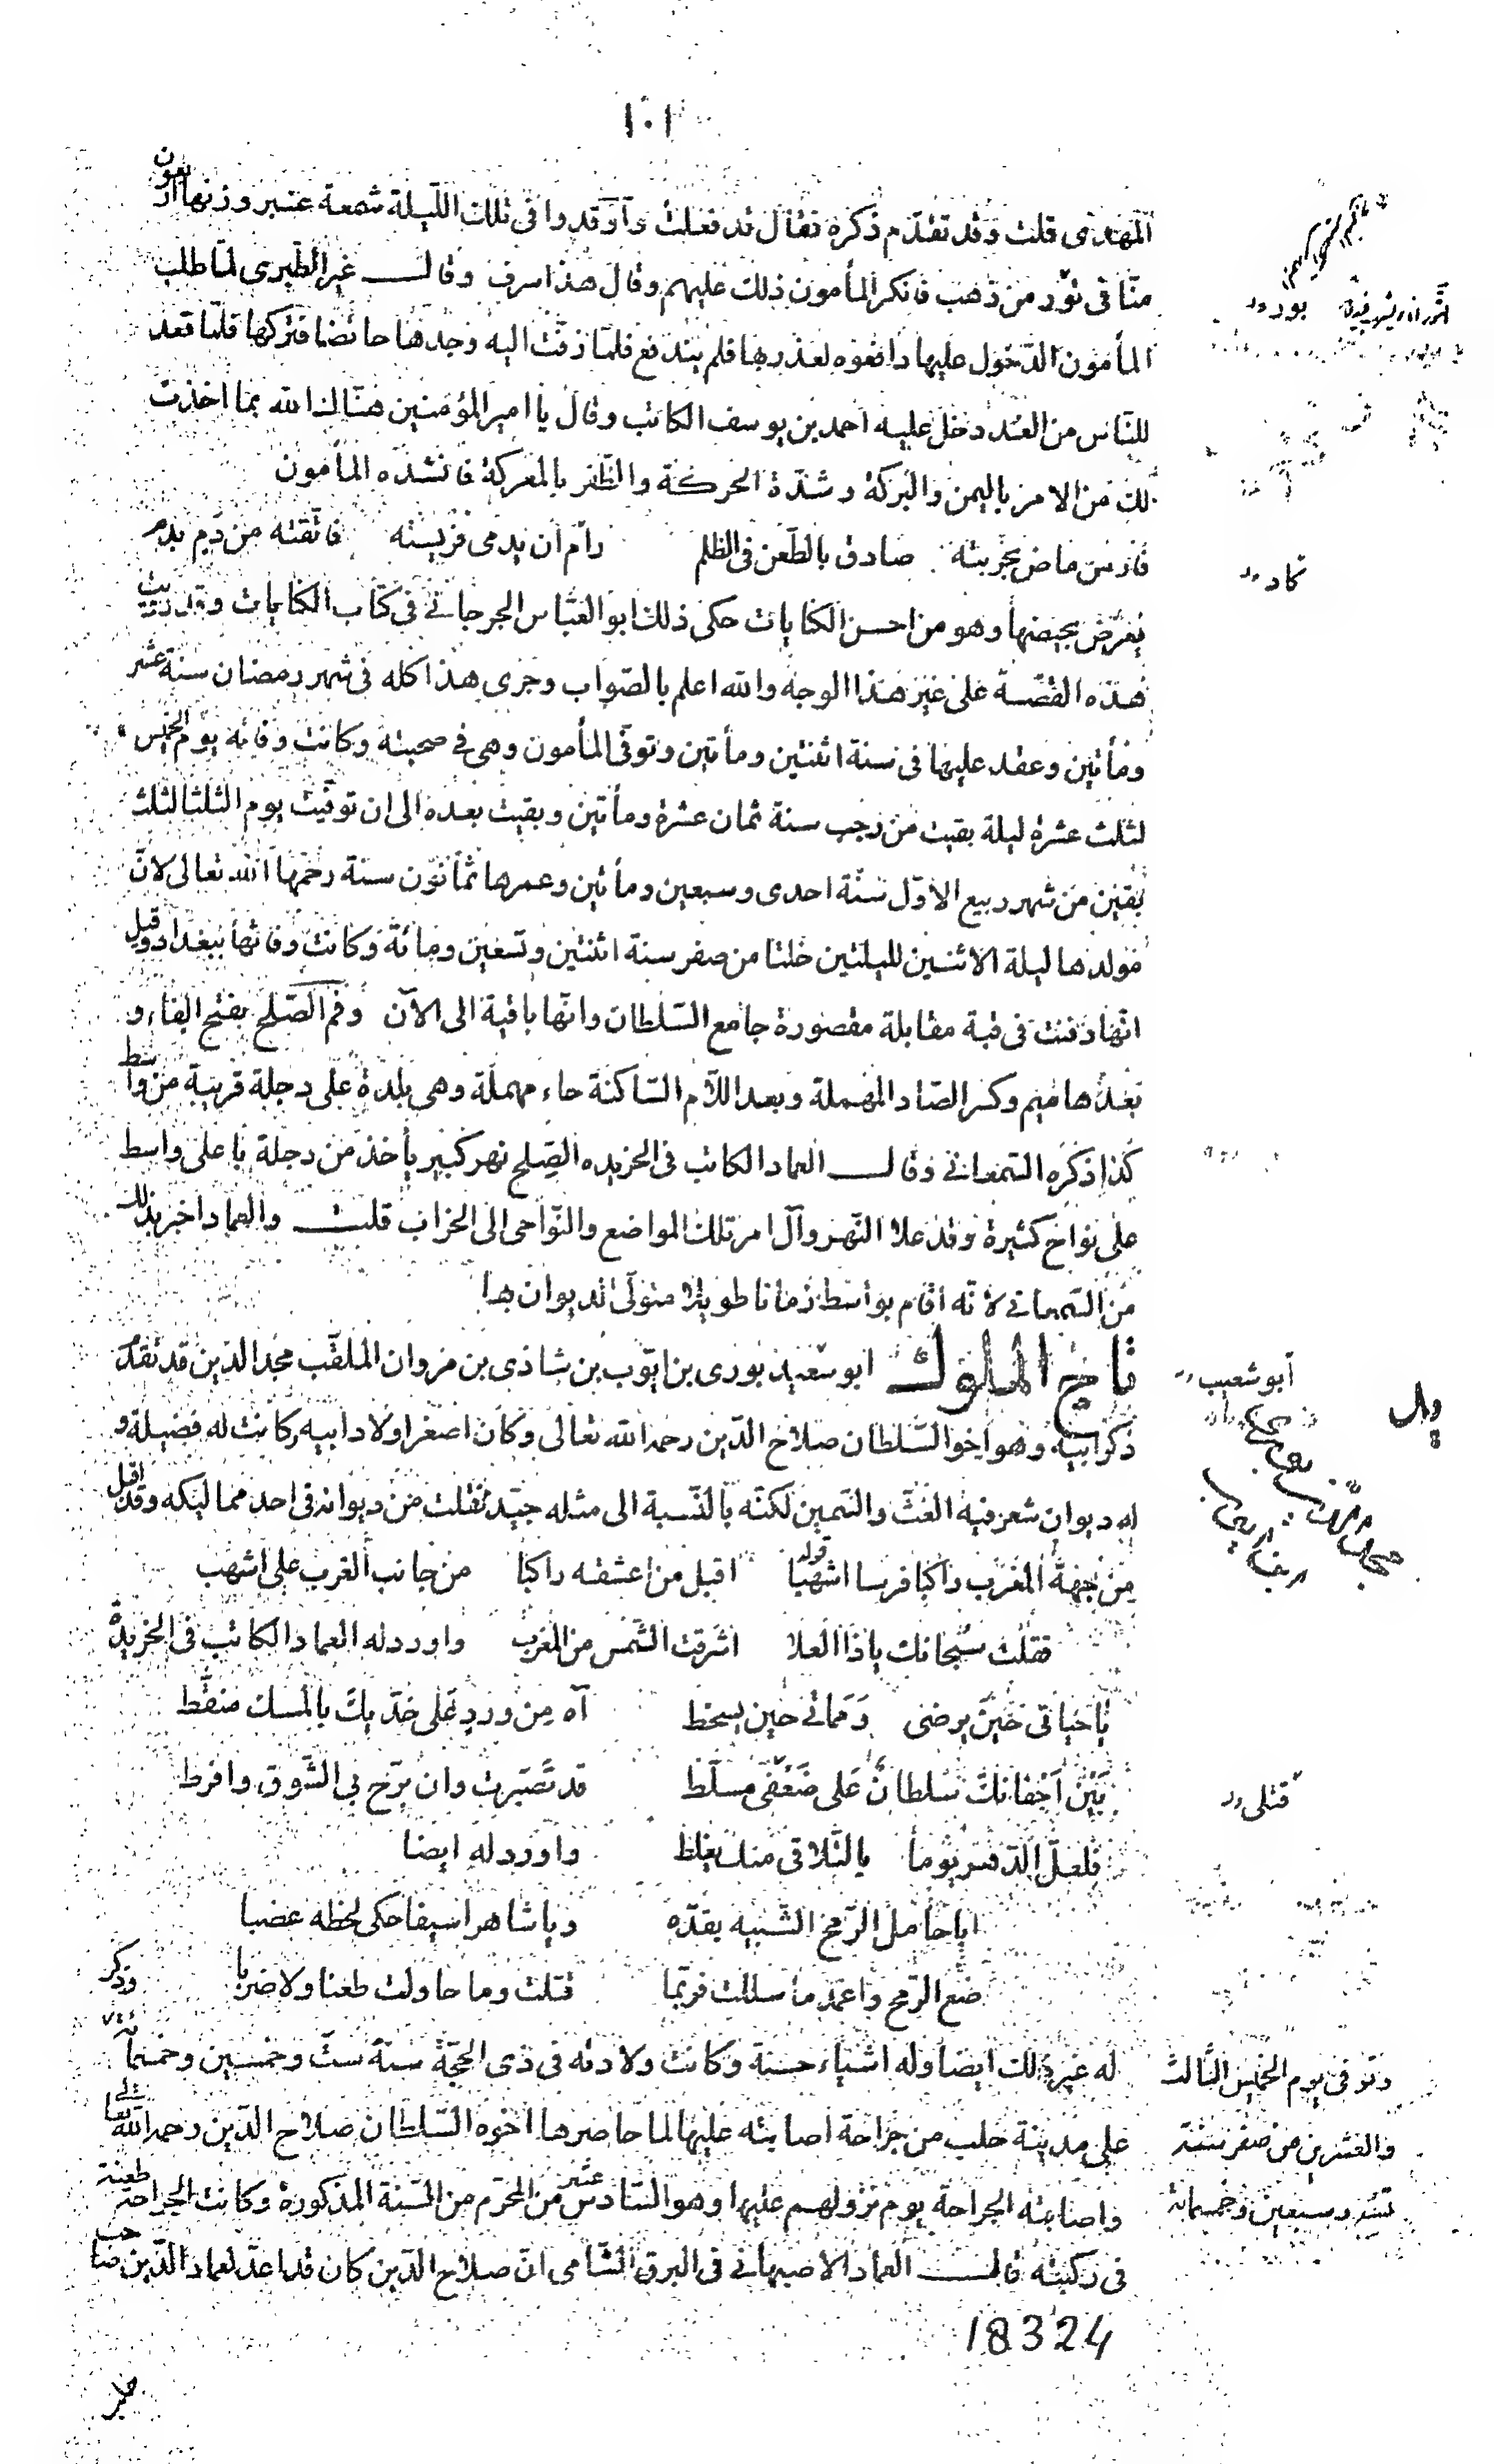 ١٠١
المهدى قلت وقد تقدّم ذكره فقال قد فعلت وأوقدوا فى تلك اللّيلة شمعة عنبر وزنها اربعون
منّا فى تور من ذهب فانكر المأمون ذلك عليهم وقال هذا سرف وقال غير الطّبرى لمّا طلب
المأمون الدّخول عليها دافعوه لعذر بها فلم يندفع فلمّا زفّت اليه وجدها حائضا فتركها فلمّا قعد
للنّاس من الغد دخل عليه احمد بن يوسف الكاتب وقال يا امير المؤمنين هنّاك الله بما اخذت
لك من الامر باليمن والبركة وشدّة الحركة والظّفر بالمعركة فانشده المأمون
فارس ماض بحربته صادق بالطّعن فى الظلم رام ان يدمى فريسته فاتّقته من دم بدم
يعرّض بحيضها وهو من احسن الكنايات حكى ذلك ابو العبّاس الجرجانى فى كتاب الكنايات وقد رويت
هذه القصّة على غير هذا الوجه والله اعلم بالصّواب وجرى هذا كله فى شهر رمضان سنة عشر
ومأتين وعقد عليها فى سنة اثنتين ومأتين وتوفّى المأمون وهى فى صحبته وكانت وفاته يوم الخميس
لثلث عشرة ليلة بقيت من رجب سنة ثمان عشرة ومأتين وبقيت بعده الى ان توفّيت يوم الثلثا لثلث
بقين من شهر ربيع الاوّل سنة احدى وسبعين ومأتين وعمرها ثمانون سنة رحمها الله تعالى لانّ
مولدها ليلة الاثنين لليلتين خلتا من صفر سنة اثنتين وتسعين ومائة وكانت وفاتها ببغداد وقيل
انّها دفنت فى قبة مقابلة مقصورة جامع السّلطان وانّها باقية الى الآن وفم الصّلح بفتح الفاء و
بعدها ميم وكسر الصّاد المهملة وبعد اللّام السّاكنة حاء مهملة وهى بلدة على دجلة قريبة من واسط
كذا ذكره السّمعانى وقال العماد الكاتب فى الخريده الصّلح نهر كبير يأخذ من دجلة باعلى واسط
على نواح كثيرة وقد علا النّهر وآل امر تلك المواضع والنّواحى الى الخراب قلت والعماد اخبر بذلك
من السّمعانى لانّه اقام بواسط زمانا طويلا متولّى الديوان بها
تاج الملوك ابو سعيد بورى بن ايّوب بن شاذى بن مروان الملقّب مجد الدّين قد تقدّم
ذكر ابيه وهو اخو السّلطان صلاح الدّين رحمه الله تعالى وكان اصغر اولاد ابيه وكانت له فضيلة و
له ديوان شعر فيه الغثّ والسّمين لكنّه بالنّسبة الى مثله جيّد نقلت من ديوانه فى احد مماليكه وقد اقبل
من جهة المغرب راكبا فرسا اشهبا قوله اقبل من اعشقه راكبا من جانب الغرب على اشهب
فقلت سبحانك يا ذا العلا اشرقت الشّمس من المغرب واورد له العماد الكاتب فى الخريدة
يا حياتى حين يرضى ومماتى حين يسخط آه من ورد على خدّيك بالمسك منقّط
بين اجفانك سلطان على ضعفى مسلّط قد تصبّرت وان برّح بى الشّوق وافرط
فلعلّ الدّهر يوما بالتّلاقى منك يغلط واورد له ايضا
ايا حامل الرّمح الشّبيه بقدّه ويا شاهرا سيفا حكى لحظه عضبا
ضع الرّمح واغمد ما سللت فربّما قتلت وما حاولت طعنا ولا ضربا وذكر
له غير ذلك ايضا وله اشياء حسنة وكانت ولادته فى ذى الحجّة سنة ستّ وخمسين وخمسمائة
على مدينة حلب من جراحة اصابته عليها لما حاصرها اخوه السّلطان صلاح الدّين رحمه الله تعالى
واصابته الجراحة يوم نزولهم عليها وهو السّادس عشر من المحرّم من السّنة المذكورة وكانت الجراحة طعنة
فى ركبته قال العماد الاصبهانى فى البرق الشّامى انّ صلاح الدّين كان قد اعدّ لعماد الدّين صاحب
بوده
كاد
أبو شعيب
قتلى
وتوفى يوم الخميس الثّالث
والعشرين من صفر سنة
تسع وسبعين وخمسمائة
18324